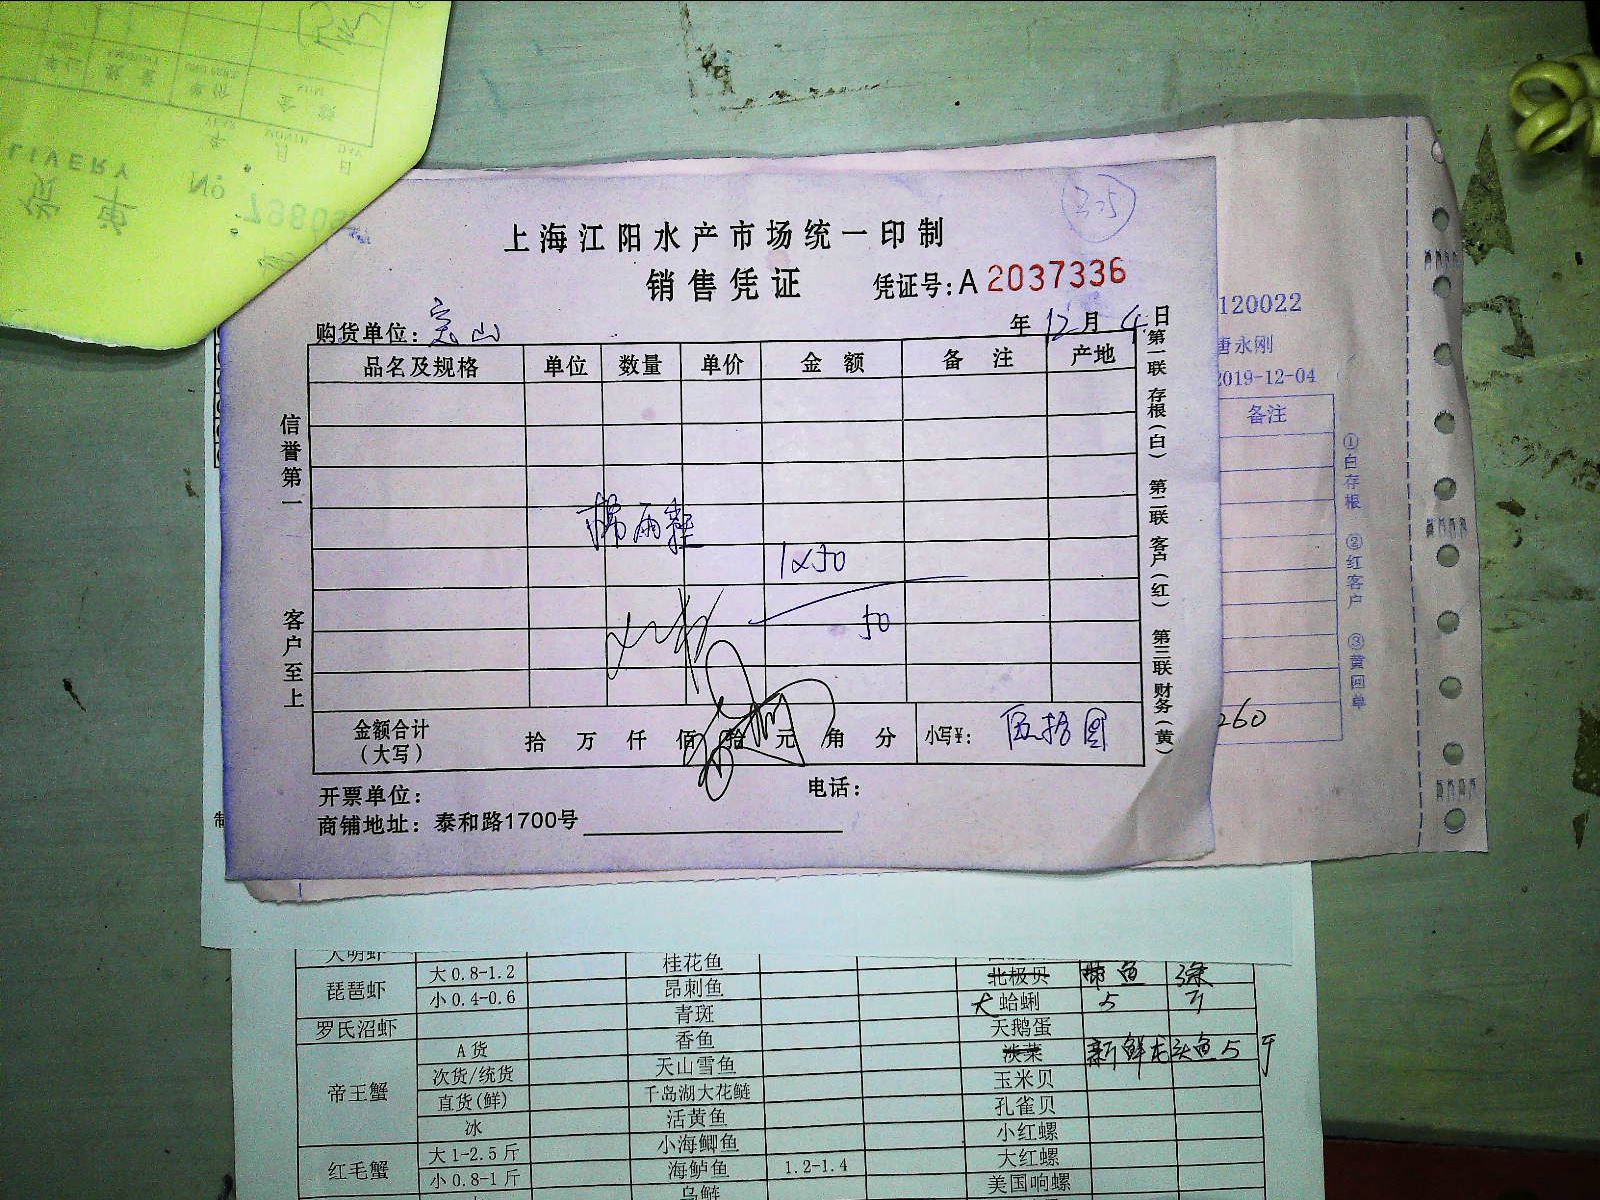 LIVERY
NO.
上海江阳水产市场统一印制
销售凭证 凭证号:A 2037336
购货单位: 宝山 年 12 月 4 日
品名及规格 单位 数量 单价 金额 备注 产地
1×50
50
金额合计(大写) 拾 万 仟 佰 拾 元 角 分 小写¥: 伍拾圆
开票单位: 电话:
商铺地址: 泰和路1700号
信誉第一
客户至上
第一联 存根(白) 第二联 客户(红) 第三联 财务(黄)
120022
唐永刚
2019-12-04
备注
①白存根 ②红客户 ③黄回单
260
大明虾 桂花鱼 北极贝 带鱼
琵琶虾 大0.8-1.2 昂刺鱼 大 蛤蜊 5 斤
小0.4-0.6 青斑 天鹅蛋
罗氏沼虾 香鱼 淡菜 新鲜龙头鱼5斤
帝王蟹 A货 天山雪鱼 玉米贝
次货/统货 千岛湖大花鲢 孔雀贝
直货(鲜) 活黄鱼 小红螺
冰 小海鲫鱼 大红螺
红毛蟹 大1-2.5斤 海鲈鱼 1.2-1.4 美国响螺
小0.8-1斤 乌鲢